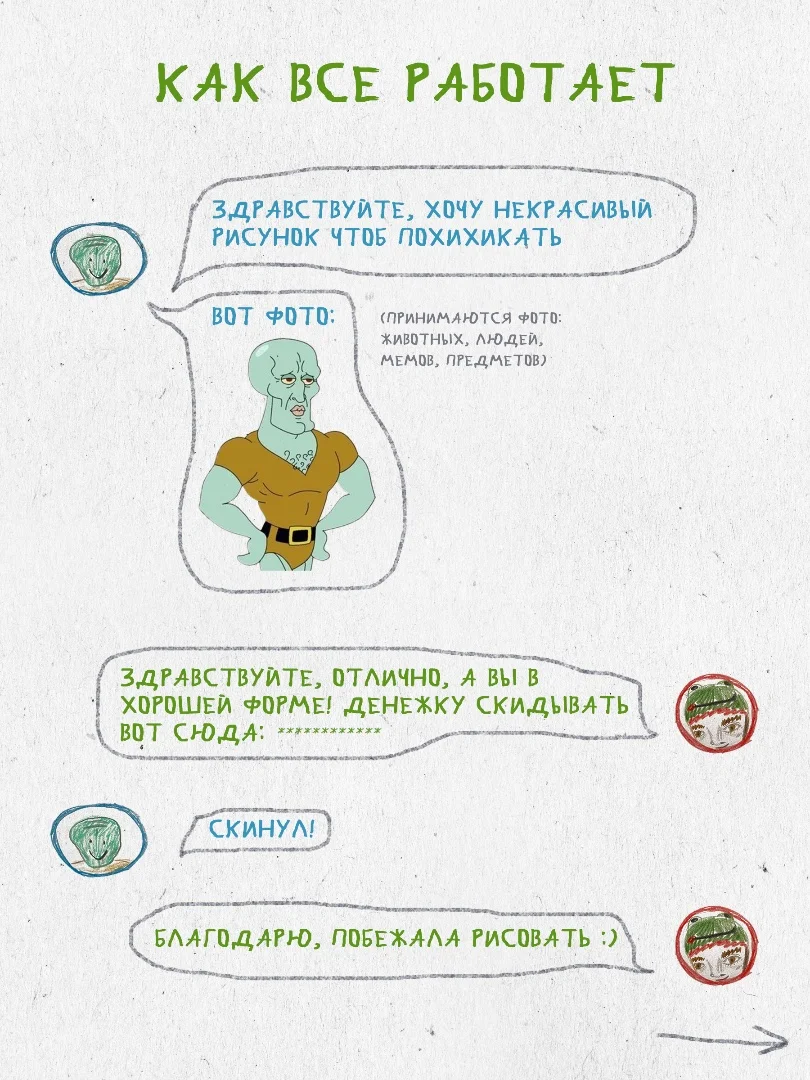 КАК ВСЕ РАБОТАЕТ
ЗДРАВСТВУЙТЕ, ХОЧУ НЕКРАСИВЫЙ
РИСУНОК ЧТОБ ПОХИХИКАТЬ
ВОТ ФОТО:
(ПРИНИМАЮТСЯ ФОТО:
ЖИВОТНЫХ, ЛЮДЕЙ,
МЕМОВ, ПРЕДМЕТОВ)
ЗДРАВСТВУЙТЕ, ОТЛИЧНО, А ВЫ В
ХОРОШЕЙ ФОРМЕ! ДЕНЕЖКУ СКИДЫВАТЬ
ВОТ СЮДА: ************
СКИНУЛ!
БЛАГОДАРЮ, ПОБЕЖАЛА РИСОВАТЬ :)